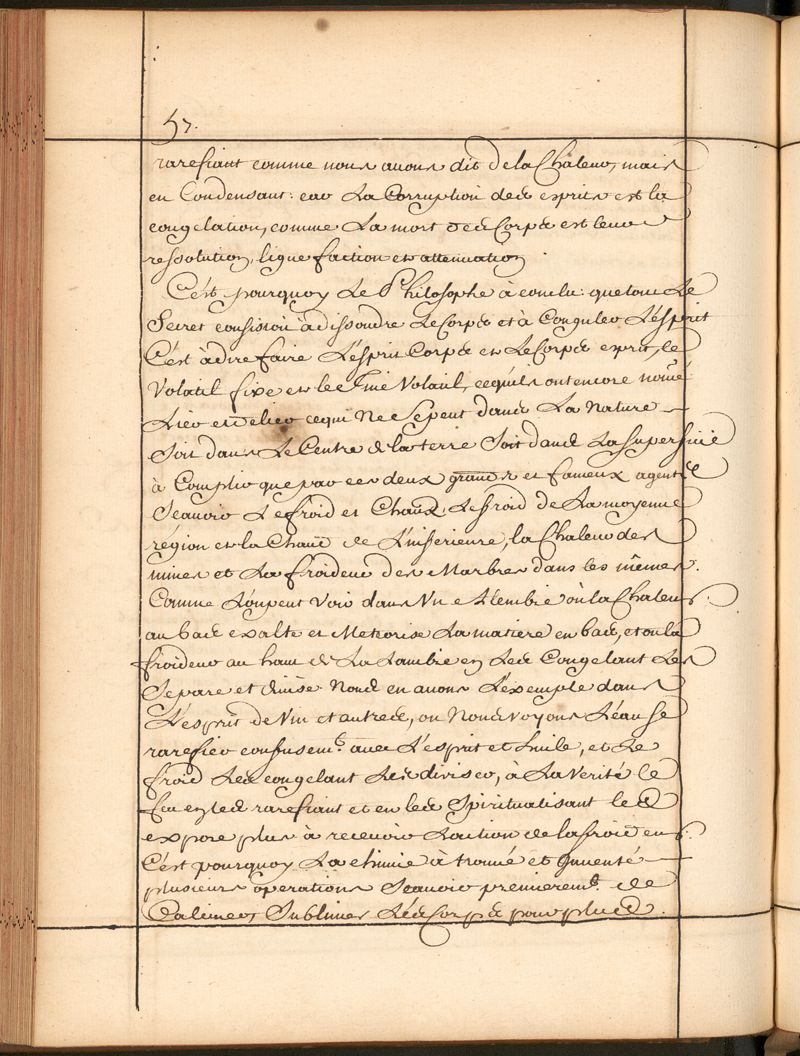 57.
rarefiant comme nous auons dit de la Chaleur, mais
en Condensant: car La Corruption des esprits est la
congelation, comme La mort des Corps est leur
ressolution, liquefaction et attenuation.
C'est pourquoy Le Philosophe à conclu: que tout Le
Secret consistoit à dissoudre Le Corps et à Conguler L'esprit
C'est à dire faire L'esprit Corps et Le Corps esprit, le
Volatil fixe et le fixe Volatil, ce qu'ils ont encore nomé
Lier et delier ce qui Ne se peut dans La Nature
Soit dans Le Centre de la terre Soit dans La superficie
à Complir que par ces deux grands et fameux agents
Scauoir Le froid et Chaud, Le froid de La moyenne
région et la Chaud de L'inferieure, la Chaleur des
mines et La froideur des Marbres dans les mêmes.
Comme L'on peut Voir dans Vn Alembic où la Chaleur
au bas exalte et Meteorise La matiere en bas, et où la
froideur au haut de La Lambic en Les Congelant Les
Separe et diuise Nous en auons L'exemple dans
L'esprit de Vin et autres, ou Nous Voyons L'eau se
rarefier confusem.t auec L'esprit et huile, et Le
froid Les congelant Les diviser, à La Verité le
feu en les rarefiant et en les Spiritualisant les
expose plus à receuoir L'action de la froideur.
C'est pourquoy La chimie à trouué et Inuenté
plusieurs operations Scauoir premierem.t de
Calciner, Sublimer Les Corps pour plus